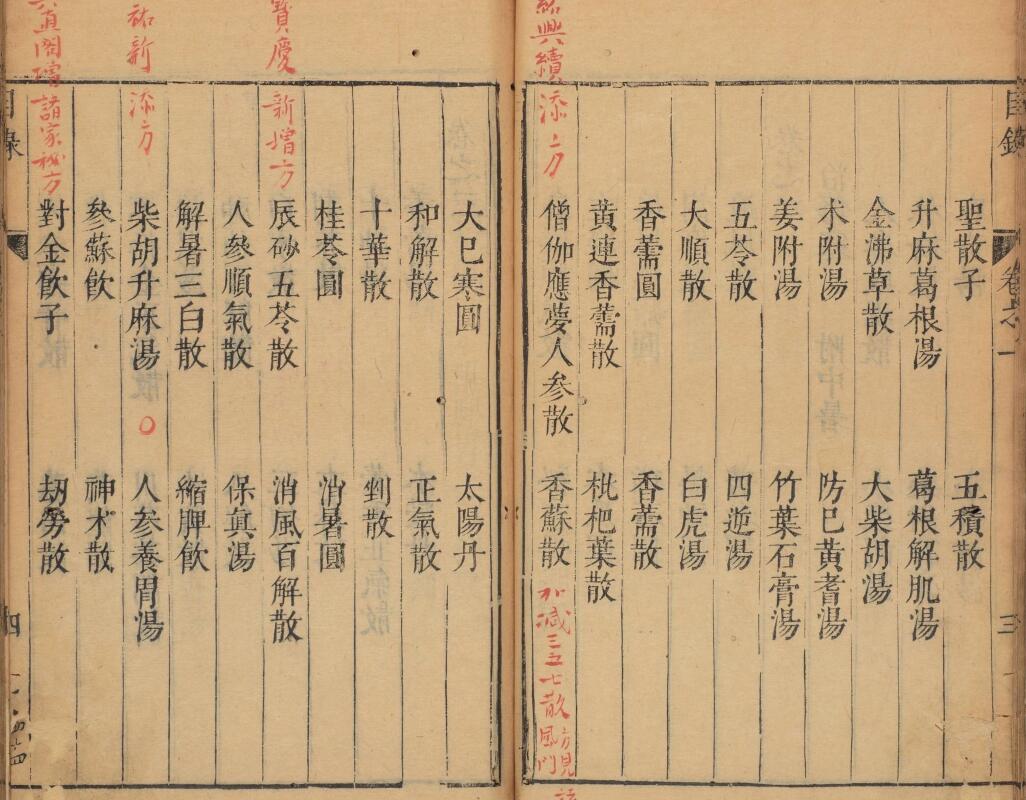 目錄 卷之一 三
聖散子 五積散
升麻葛根湯 葛根解肌湯
金沸草散 大柴胡湯
术附湯 防巳黃耆湯
姜附湯 竹葉石膏湯
五苓散 四逆湯
大順散 白虎湯
香薷圓 香薷散
黃連香薷散 枇杷葉散
紹興續添方
僧伽應夢人参散 香蘇散 加減三五七散 方見風門
大巳寒圓 太陽丹
和解散 正氣散
十華散 㓨散
桂苓圓 消暑圓
寶慶新增方
辰砂五苓散 消風百解散
人參順氣散 保眞湯
解暑三白散 縮脾飲
祐新添方
柴胡升麻湯 人參養胃湯
參蘇飲 神术散
直閣增諸家秘方
對金飲子 刼勞散
目錄 四